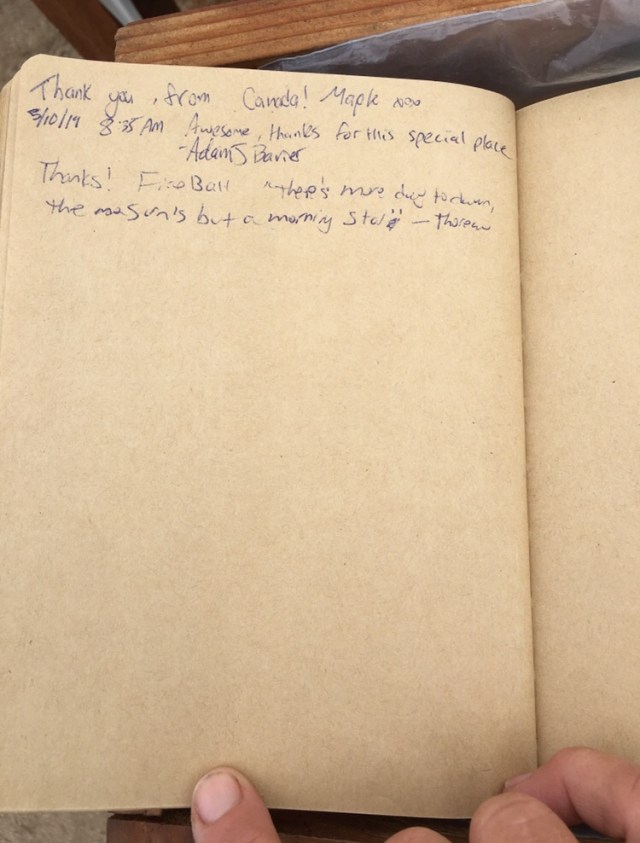 Thank you, from Canada! Maple xoxo
5/10/19 8:35 AM Awesome, thanks for this special place
-Adam S
Thanks! FireBall "there's more day to dawn,
the sun is but a morning star" — Thoreau